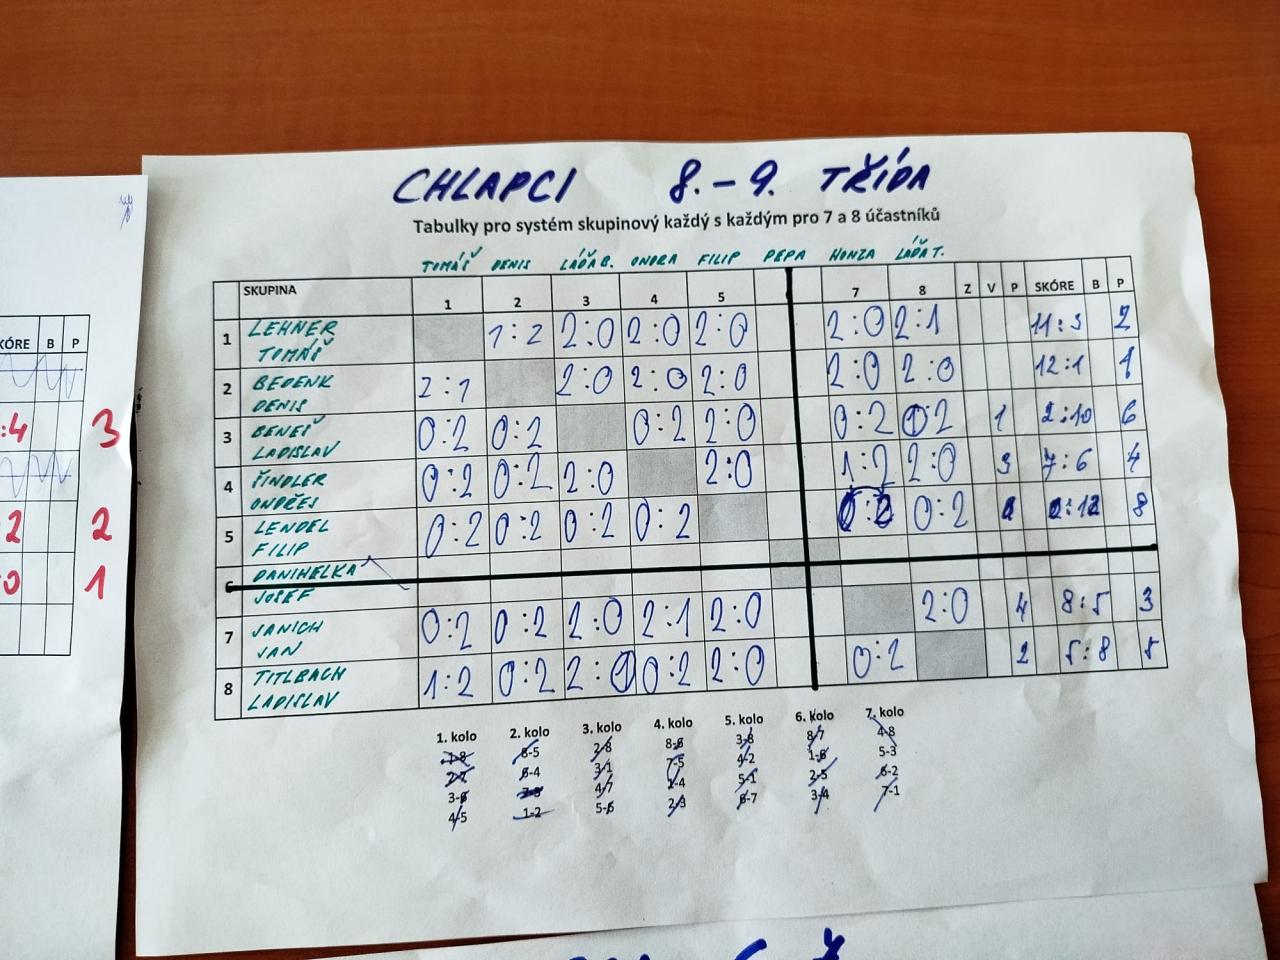 CHLAPCI 8.-9. TŘÍDA
Tabulky pro systém skupinový každý s každým pro 7 a 8 účastníků
TOMÁŠ DENIS LÁĎA B. ONDRA FILIP PEPA HONZA LÁĎA T.
SKUPINA 1 2 3 4 5 7 8 Z V P SKÓRE B P
1 LEHNER TOMÁŠ 1:2 2:0 2:0 2:0 2:0 2:1 11:3 2
2 BEDENK DENIS 2:1 2:0 2:0 2:0 2:0 2:0 12:1 1
3 BENEŠ LADISLAV 0:2 0:2 0:2 2:0 0:2 0:2 1 2:10 6
4 ŠINDLER ONDŘEJ 0:2 0:2 2:0 2:0 1:2 2:0 3 7:6 4
5 LENDEL FILIP 0:2 0:2 0:2 0:2 0:2 0:2 0:12 8
6 DANIHELKA JOSEF
7 JANICH JAN 0:2 0:2 2:0 2:1 2:0 2:0 4 8:5 3
8 TITLBACH LADISLAV 1:2 0:2 2:0 0:2 2:0 0:2 2 5:8 5
1. kolo 2. kolo 3. kolo 4. kolo 5. kolo 6. kolo 7. kolo
1-8 8-5 2-8 8-6 3-8 8-7 4-8
2-7 6-4 3-1 7-5 4-2 1-6 5-3
3-6 7-3 4-7 1-4 5-1 2-5 6-2
4-5 1-2 5-6 2-3 6-7 3-4 7-1
KÓRE B P
:4 3
2 2
0 1